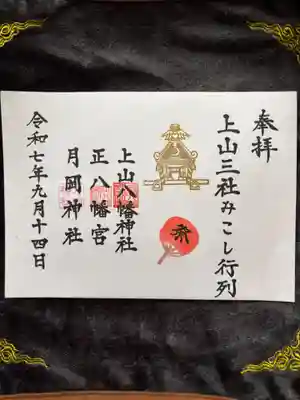 奉拝
上山三社みこし行列
上山八幡神社
正八幡宮
月岡神社
令和七年九月十四日